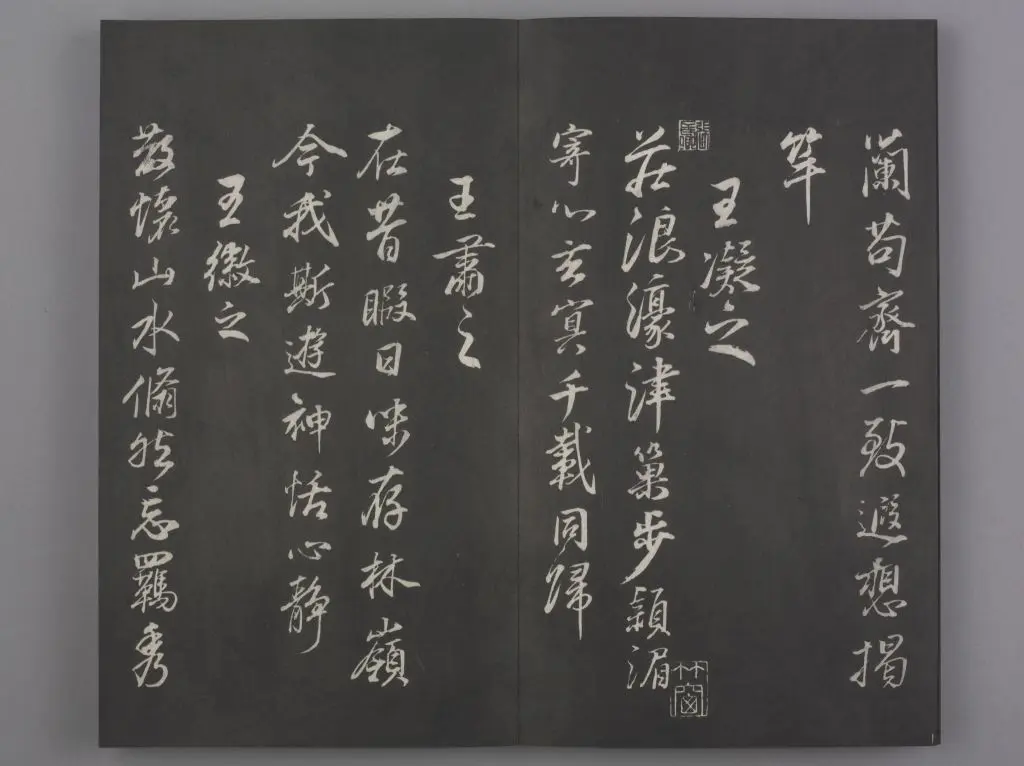 蘭苟齊一致遐想揭
竿
王凝之
莊浪濠津巢步潁湄
寄心玄冥千載同歸
王肅之
在昔暇日味存林嶺
今我斯遊神恬心静
王徽之
散懷山水翛然忘羈秀
竹窗